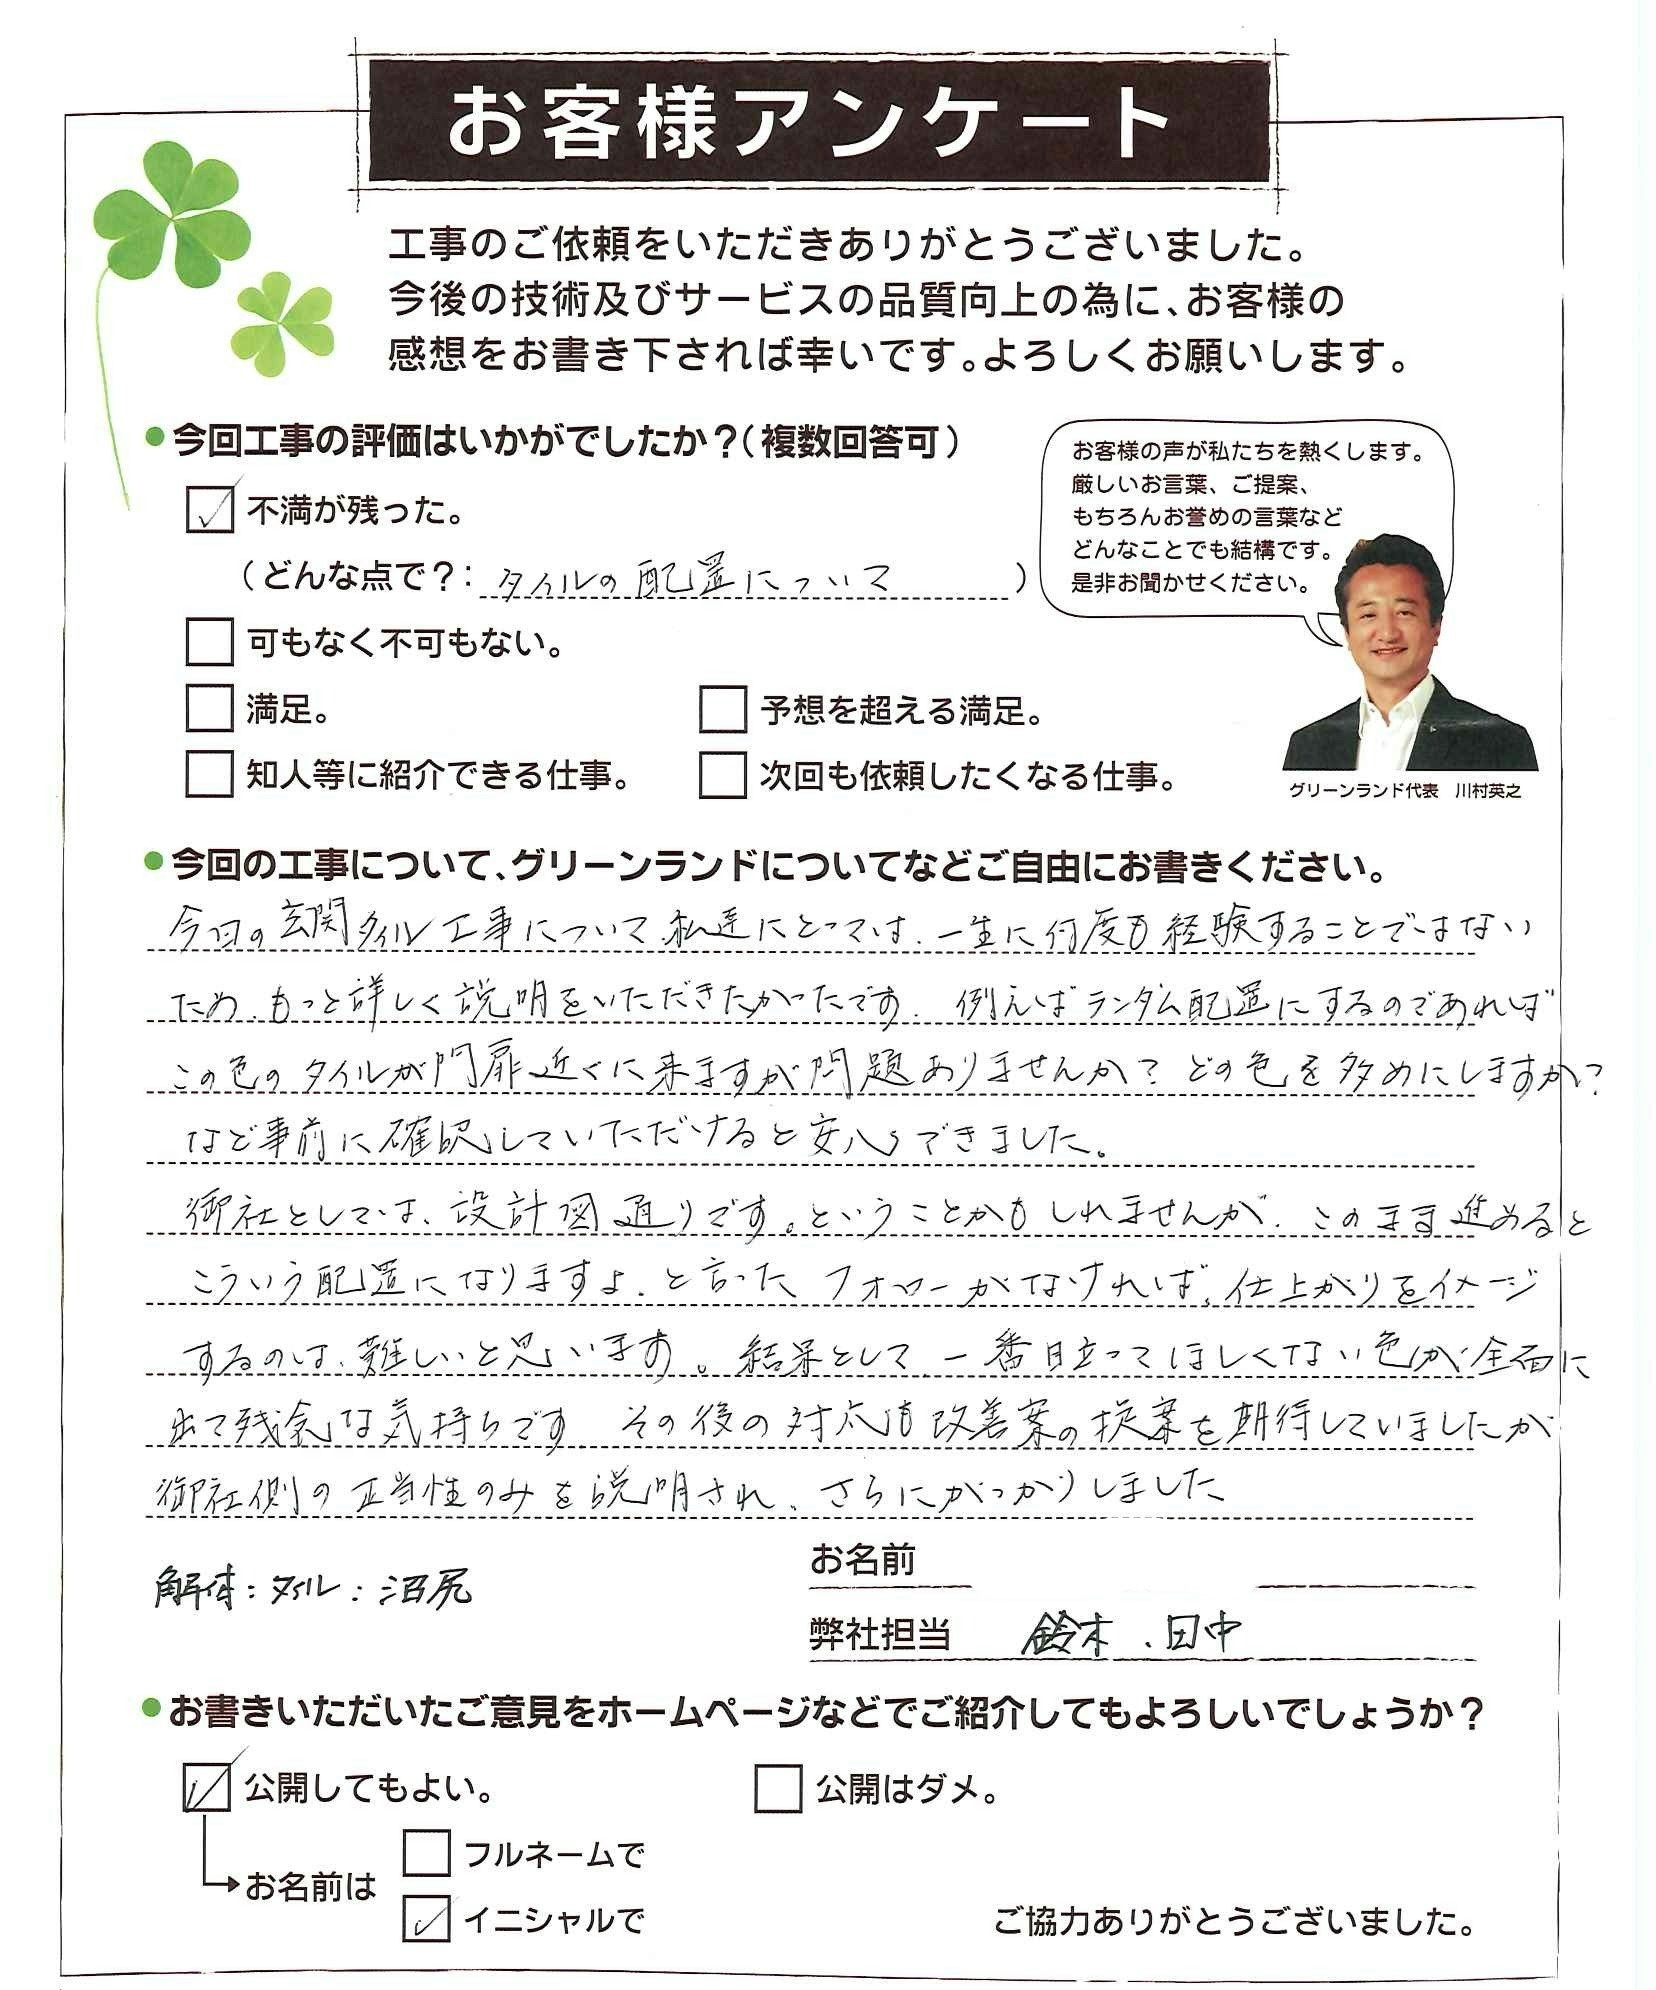 お客様アンケート
工事のご依頼をいただきありがとうございました。
今後の技術及びサービスの品質向上の為に、お客様の
感想をお書き下されば幸いです。よろしくお願いします。
●今回工事の評価はいかがでしたか？(複数回答可)
不満が残った。
(どんな点で？: タイルの配置について)
可もなく不可もない。
満足。
予想を超える満足。
知人等に紹介できる仕事。
次回も依頼したくなる仕事。
お客様の声が私たちを熱くします。
厳しいお言葉、ご提案、
もちろんお誉めの言葉など
どんなことでも結構です。
是非お聞かせください。
グリーンランド代表 川村英之
●今回の工事について、グリーンランドについてなどご自由にお書きください。
今回の玄関タイル工事について私達にとっては、一生に何度も経験することではない
ため、もっと詳しく説明をいただきたかったです。例えばランダム配置にするのであれば
この色のタイルが門扉近くに来ますが問題ありませんか？どの色を多めにしますか？
など事前に確認していただけると安心できました。
御社としては、設計図通りです。ということかもしれませんが、このまま進めると
こういう配置になりますよ、と言ったフォローがなければ、仕上がりをイメージ
するのは、難しいと思います。結果として、一番目立ってほしくない色が全面に
出て残念な気持ちです。その後の対応も改善案の提案を期待していましたが
御社側の正当性のみを説明され、さらにがっかりしました
解体：タイル：沼尻
お名前
弊社担当 鈴木、田中
●お書きいただいたご意見をホームページなどでご紹介してもよろしいでしょうか？
公開してもよい。
公開はダメ。
お名前は
フルネームで
イニシャルで
ご協力ありがとうございました。